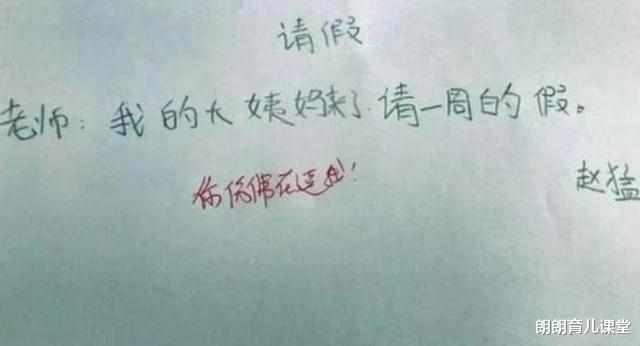 请假
老师：我的大姨妈来了请一周的假。
你仿佛在逗我！
赵猛
朗朗育儿课堂